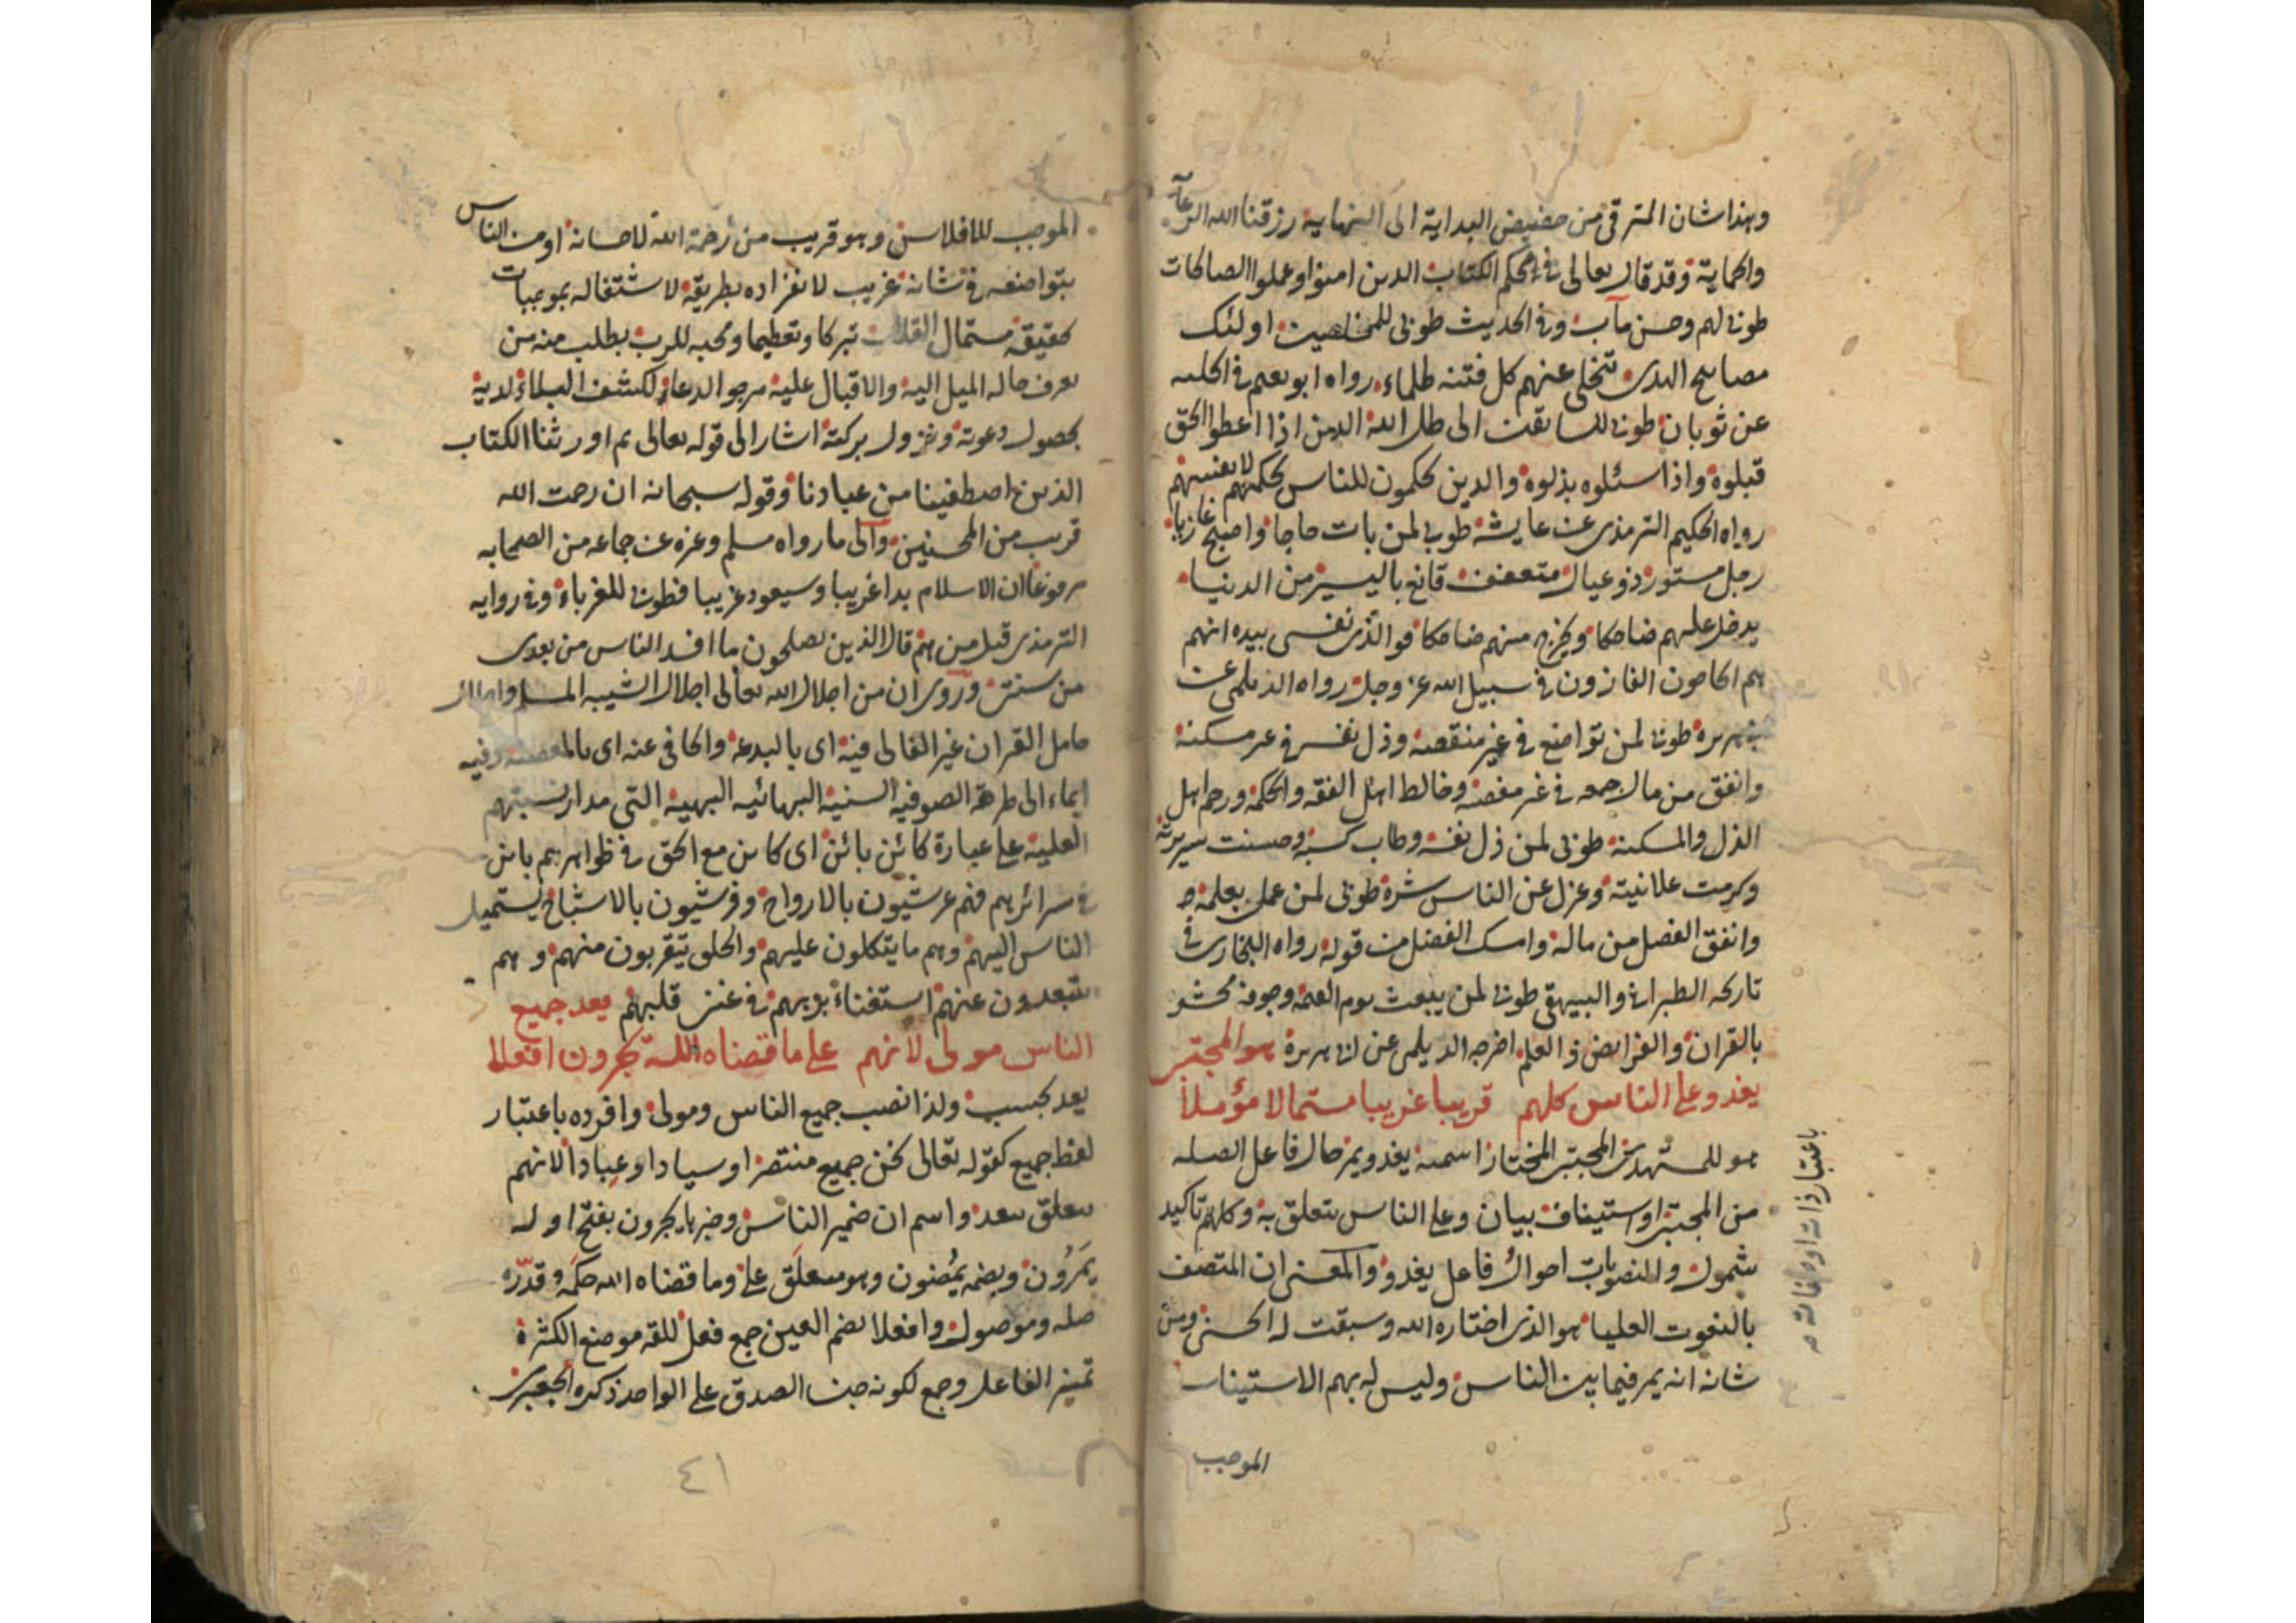 وهذا شان المترقي من حضيض البداية الى النهاية رزقنا الله الرعاية
والحماية وقد قال تعالى في محكم الكتاب الذين امنوا وعملوا الصالحات
طوبى لهم وحسن مآب وفي الحديث طوبى للمخلصين اولئك
مصابيح الهدى تتجلى عنهم كل فتنة ظلماء رواه ابو نعيم في الحلية
عن ثوبان طوبى للسابقين الى ظل الله الذين اذا اعطوا الحق
قبلوه واذا سئلوه بذلوه والذين يحكمون للناس بحكمهم لانفسهم
رواه الحكيم الترمذي عن عايشة طوبى لمن بات حاجا واصبح غازيا
رجل مستور ذو عيال متعفف قانع باليسير من الدنيا
يدخل عليهم ضاحكا ويخرج منهم ضاحكا فو الذي نفسي بيده انهم
هم الحاجون الغازون في سبيل الله عز وجل رواه الديلمي عن
هريرة طوبى لمن تواضع في غير منقصة وذل نفسه في غير مسكنة
وانفق من مال جمعه في غير معصية وخالط اهل الفقه والحكمة ورحم اهل
الذل والمسكنة طوبى لمن ذل نفسه وطاب كسبه وحسنت سريرته
وكرمت علانيته وعزل عن الناس شره طوبى لمن عمل بعلمه
وانفق الفضل من ماله وامسك الفضل من قوله رواه البخاري في
تاريخه الطبراني والبيهقي طوبى لمن يبعث يوم القيمة وجوفه محشو
بالقران والفرايض والعلم اخرجه الديلمي عن ابي هريرة هو المجتبى
يغدو على الناس كلهم قريبا غريبا مستمالا مؤملا
هو للمستهدي المجتبى المختار اسمية يغدو يمر حال فاعل الصلة
من المجتبى او استيناف بيان وعلى الناس متعلق به وكلهم تاكيد
شمول والمنصوبات احوال فاعل يغدو والمعنى ان المتصف
بالنعوت العليا هو الذي اختاره الله وسبقت له الحسنى ومن
شانه انه يمر فيما بين الناس وليس له بهم الاستيناس
الموجب
باعتبار ذاته او
الموجب للافلاس وهو قريب من رحمة الله لاحسانه او من الناس
بتواضعه في شانه غريب لانفراده بطريقه لاشتغاله بموجبات
حقيقة مستمال القلوب تبركا وتعظيما ومحبة للرب يطلب منه من
يعرف حاله الميل اليه والاقبال عليه مرجو الدعاء لكشف البلاء لديه
بحصول دعوته ونزول بركته اشار الى قوله تعالى ثم اورثنا الكتاب
الذين اصطفينا من عبادنا وقوله سبحانه ان رحمت الله
قريب من المحسنين والى ما رواه مسلم وغيره عن جماعة من الصحابه
مرفوعا ان الاسلام بدا غريبا وسيعود غريبا فطوبى للغرباء وفي رواية
الترمذي قيل من هم قال الذين يصلحون ما افسد الناس من بعدي
من سنتي وروى ان من اجلال الله تعالى اجلال الشيبة المسلم
حامل القران غير الغالي فيه اى بالبدعة والجافي عنه اى بالمعصية وفيه
ايماء الى طرفة الصوفية السنية البهائية البهية التي مدار نسبتهم
العلية على عبارة كائن بائن اى كاين مع الحق في ظواهرهم باين
في سرائرهم فهم عرشيون بالارواح وفرشيون بالاشباح يستميل
الناس اليهم وهم ما يتكلون عليهم والخلق يتقربون منهم وهم
يتبعدون عنهم استغناء بربهم في غنى قلبهم يعد جميع
الناس مولى لانهم على ما قضاه الله يجرون افعلا
يعد يحسب ولذا نصب جميع الناس ومولى وافرده باعتبار
لفظ جميع كقوله تعالى نحن جميع منتصر او سيادا او عبادا لانهم
متعلق بيعد واسم ان ضمير الناس وخبرها يجرون بفتح اوله
يمرون وبضمه يمضون وهو متعلق على وما قضاه الله حكمه وقدره
صلة وموصول وافعلا بضم العين جمع فعل للقلة موضع الكثرة
تميز الفاعل وجمع لكونه جنسا لصدق على الواحد ذكره الجعبرى
٤١